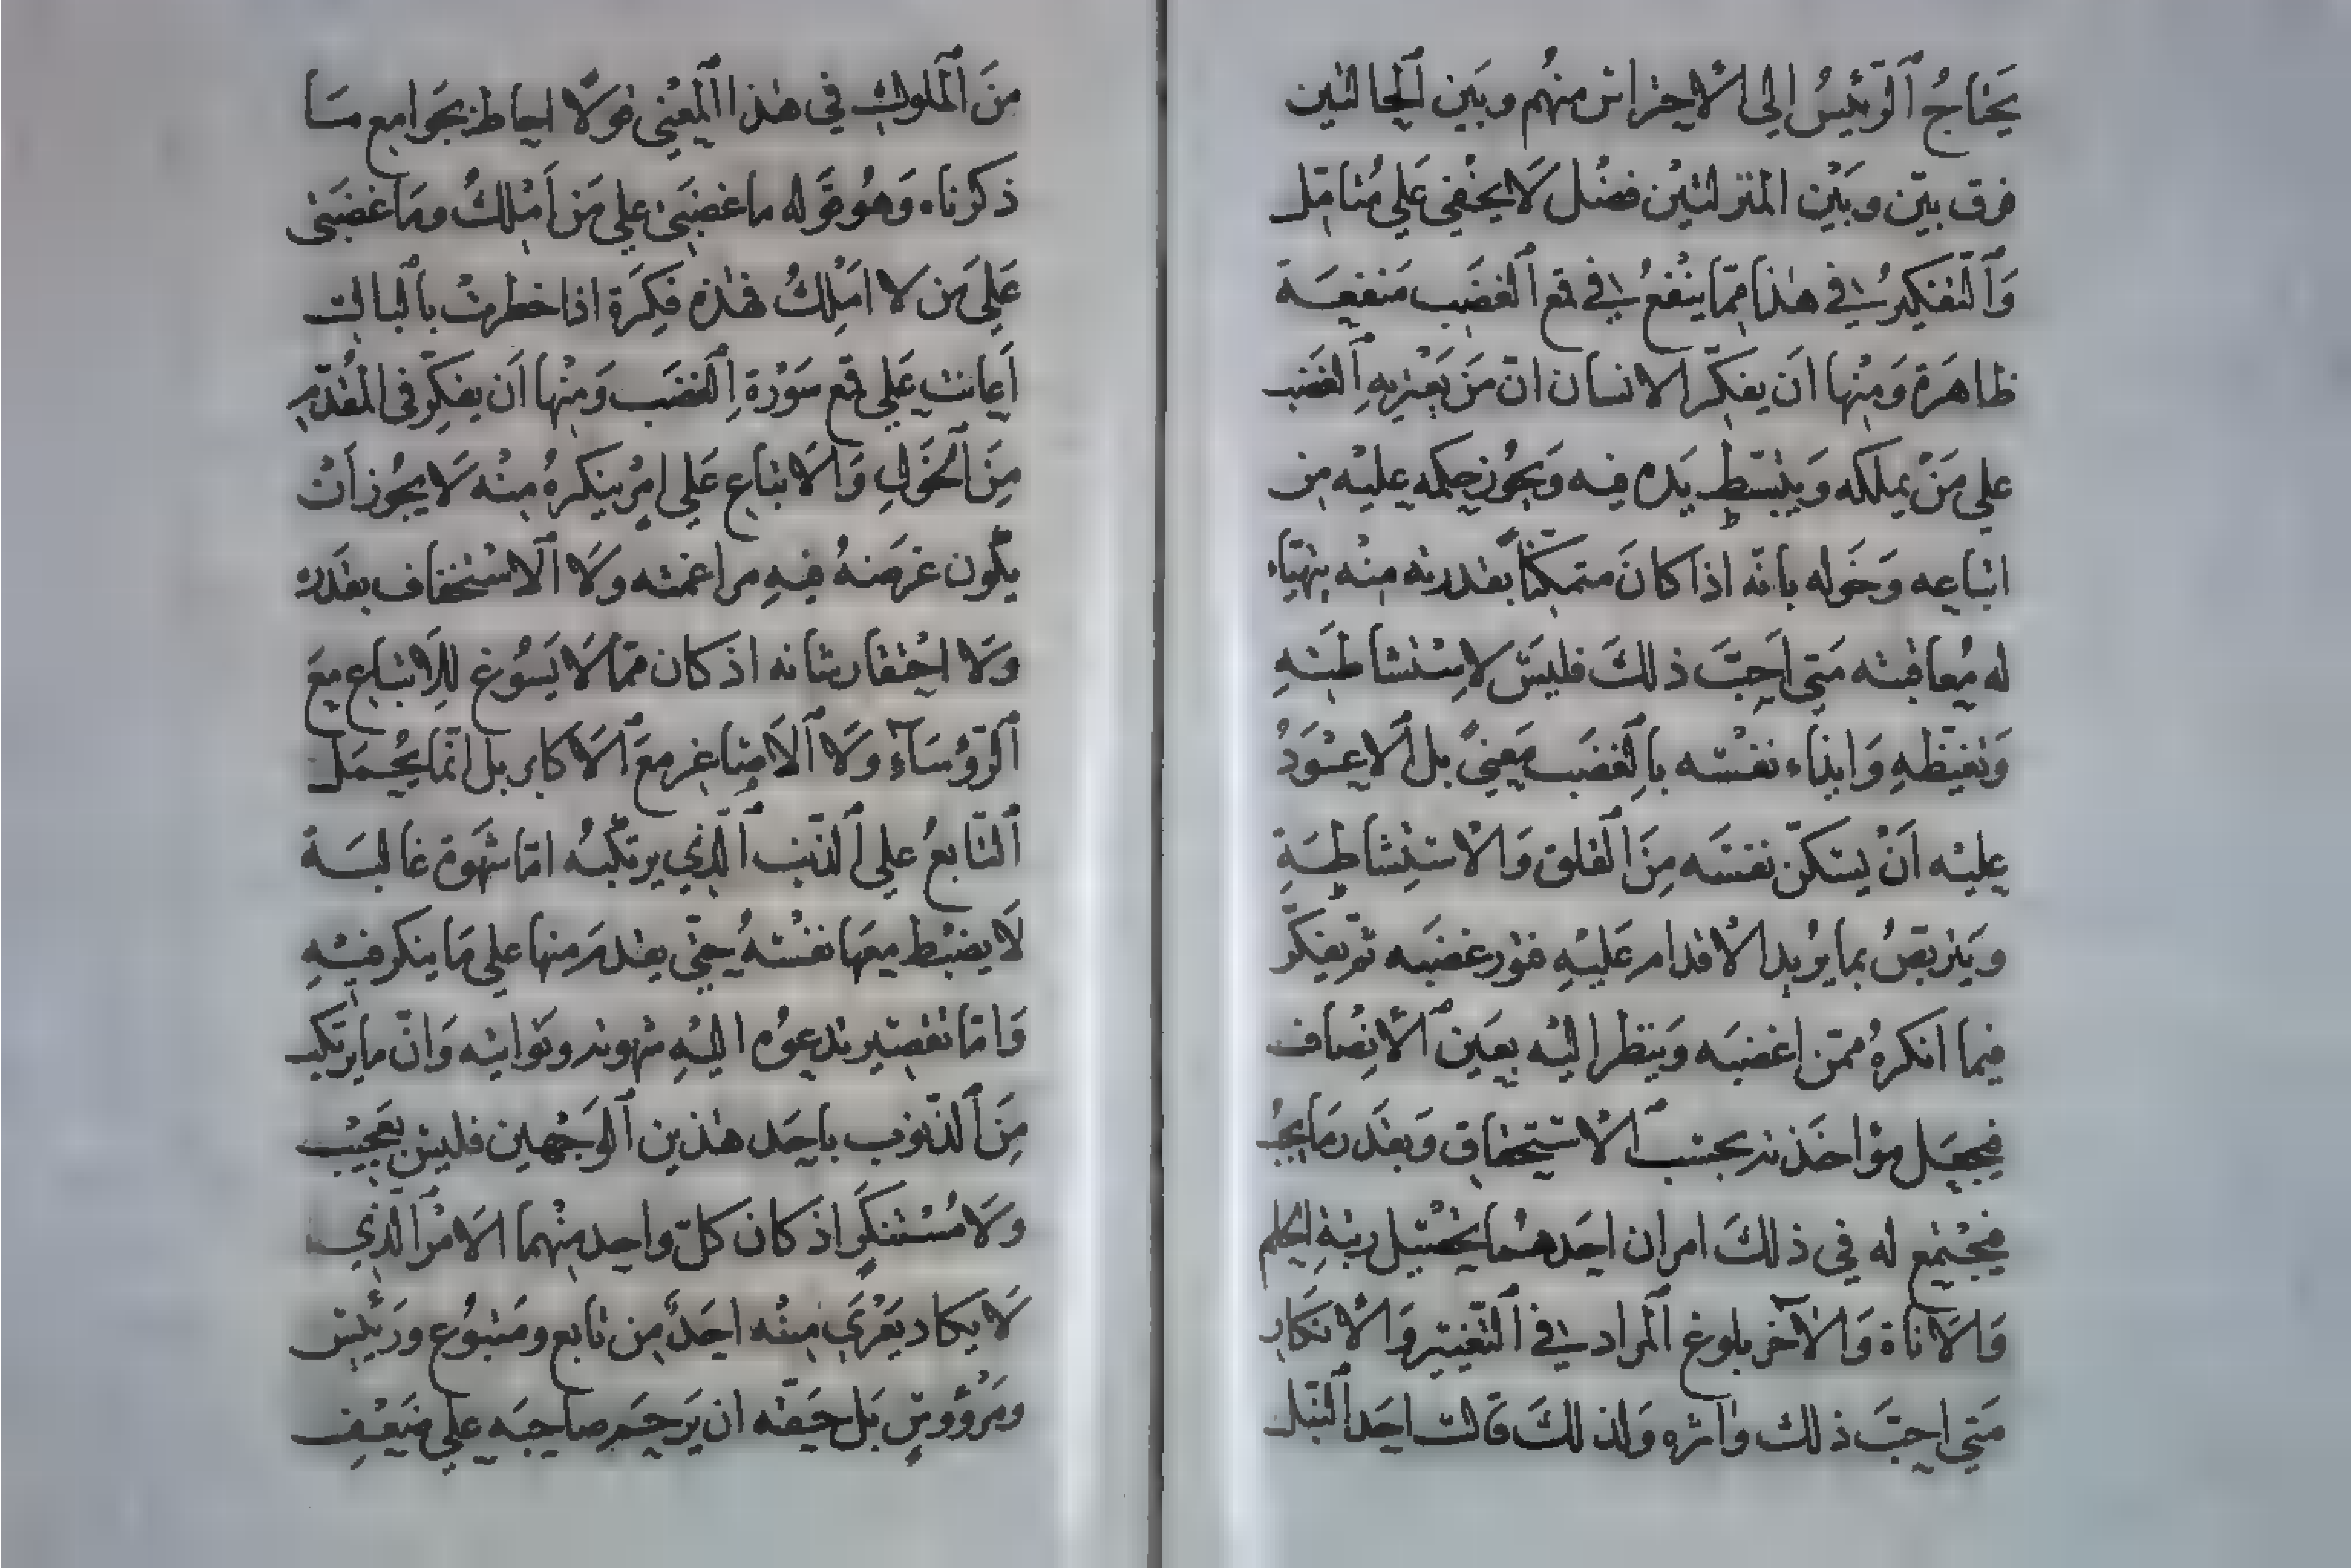 يَحتاجُ ٱلرَّئيسُ الى ٱلاحتراس منهُم وبَين ٱلحالتين
فرق بيّن وبَيْن المنزلتيْن فضْل لَا يخفى عَلى مُتامّل
وَٱلتفكيرُ في هٰذا ممّا ينْفعُ في قمع ٱلغضَب مَنفعَة
ظاهَرة وَمنْها انَ يفكّر الانسان انّ مَن يَعتريهِ ٱلغضَب
على مَنْ يملكه وَينْبَسط يَده فيه وَيجُوز حكمه عليْه من
اتباعه وَخَوله بانّه اذا كانَ متمكّناً بقدرته منْه يتهيّاء
له مُعاقبته مَتى احَبَّ ذلكَ فليسَ لاِسْتشاطتهِ
وَتغيّظهِ وَايذاء نفسْه بٱلغضَب مَعنىً بل ٱلاعْوَدُ
عليْه اَنْ يسَكّن نفسَه مِنَ ٱلقلق وَالاسْتشاطةِ
وَيتربّصُ بما يرُيد الاقدام عَليْهِ فوْر غضبَه ثمّ يفكّر
فيما انكرهُ ممّن اغضبَه وَينظر اليْه بعَين ٱلانِصْاف
فيجعَل مؤاخَذته بحسْب ٱلاسْتحقاق وَبقدَر مَا يجُب
فيجْتمع له في ذلكَ امران احَدهُما يحْصل رتبةِ الحلم
وَالاَناة وَالآخر بلوغ ٱلمراد في ٱلتّغْيير وَالاْنكَار
مَتى احبَّ ذلك وآثره وَلذلكَ قَالت احَد ٱلنّبل
مِنَ ٱلملوك في هٰذا ٱلمعْنى قوَلاً احاط بجَوامع مَا
ذكرْناه وَهُو قوَله ما غضَبى على مَن اَمْلكُ ومَا غضَبى
عَلَى مَن لا امَلِكُ فهٰذه فِكَرة اذا خطرتْ بٱلبالت
اَعانت عَلى قمع سَوْرةِ ٱلغضَب وَمنْها اَن يفكّر فى المقُدّم
مِنَ ٱلخوَلِ وَالاَتباع عَلى امْر ينكرهُ منْه لَا يجُوز اَنْ
يكُون غرضَهُ فيهِ مراغمته ولَا ٱلاسْتخفاف بقدَره
ولَا احْتقار شانه اذ كان ممّا لَا يَسُوغ للِاَتباع معَ
ٱلرّؤُسَآءِ وَلَا ٱلاَصاغر معَ ٱلاَكابر بل انّما يحُمَل
ٱلتّابعُ على ٱلذّنب ٱلّذي يرتكبهُ امّا شَهْوة غالبَة
لَا يضبْط معَها نفسْهُ حتّى يقدمَ منها على مَا ينكر فيْهِ
وَامّا تقصَير يدعوُه اليْهِ تهوّنه وتَوانيْه وَانّ ما يرتكَب
مِنَ ٱلذّنوب باحَد هٰذين ٱلوَجْهين فليسْ بعَجيْب
وَلَا مُسْتنكَر اذ كان كلّ واحد منهْما الاَمرْ ٱلّذي
لَا يكاد يَعْرَى منْه احَدٌ من تابع ومَتبوُع وَرَئيس
ومَرْؤُوسٍ بَل حَقّه ان يَرْحَم صاحبَه على ضَعْفِ